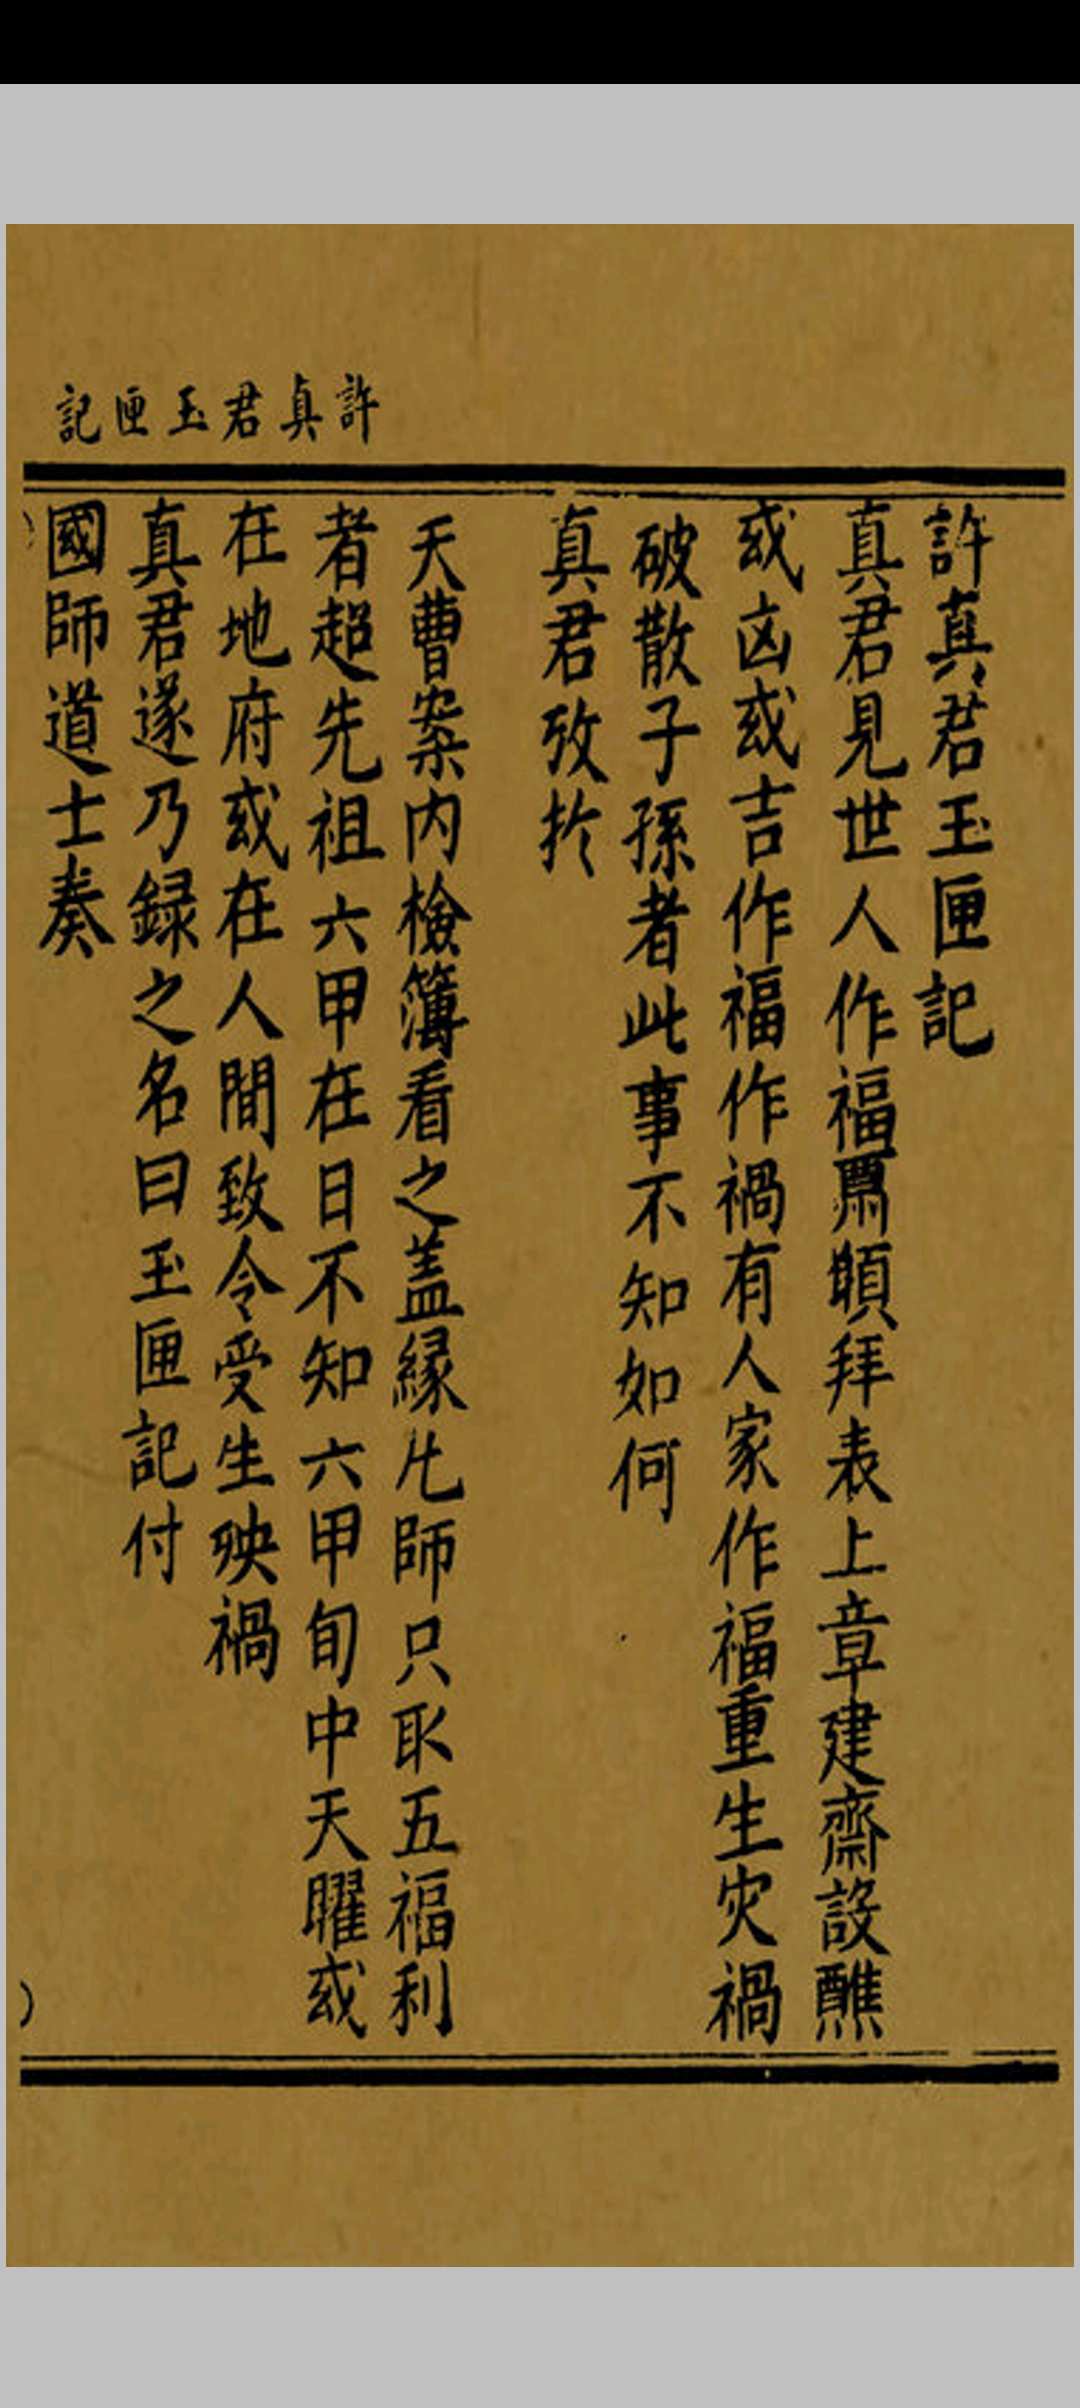 許真君玉匣記
許真君玉匣記
真君見世人作福賽願拜表上章建齋設醮
或凶或吉作福作禍有人家作福重生灾禍
破散子孫者此事不知如何
真君攷扵
天曹案内檢簿看之盖縁凢師只取五福利
者超先祖六甲在日不知六甲旬中天曜或
在地府或在人間致令受生殃禍
真君遂乃録之名曰玉匣記付
國師道士奏